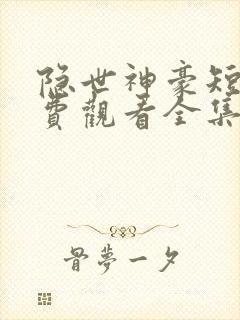 隐世神豪短
費觀看全集
骨夢一夕